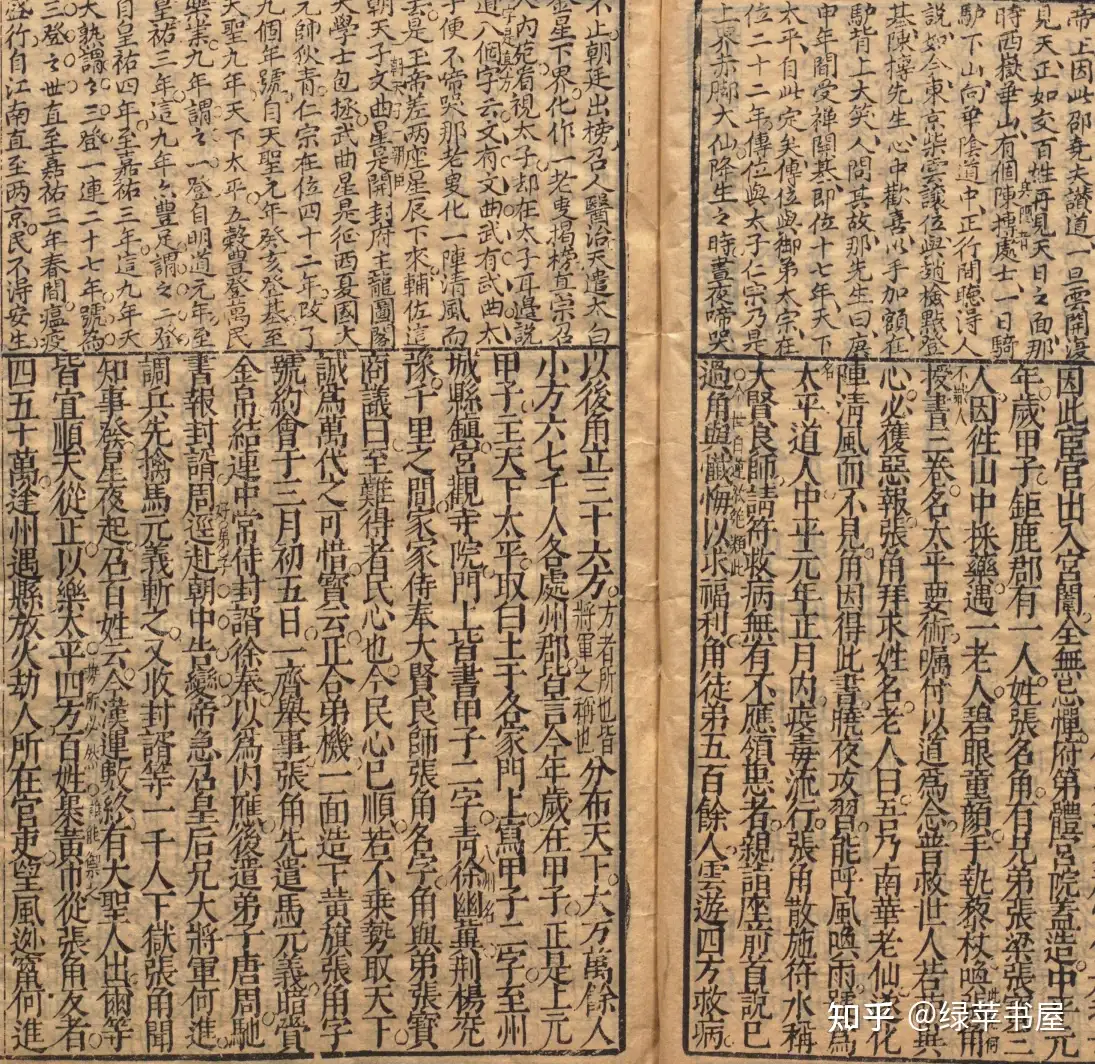 帝上因此邵堯夫讚道一旦雲開復
見天正如教百姓再見天日之面那
時西嶽華山有個陳摶處士一日騎
驢下山向華陰道中正行間聽淂人
說如今東京柴雲讓位與趙檢點登
基陳摶先生心中歡喜以手加額在
馿背上大笑人問其故那先生曰庚
申年間受禅開基即位十七年天下
太平自此定矣傳位與御弟太宗在
位二十二年傳位與太子仁宗乃是
上界赤脚大仙降生之時晝夜啼哭
因此宦官出入宮闈全無忌憚府第體宮院蓋造中平元
年歲甲子鉅鹿郡有一人姓張名角有兄弟張梁張三
人因徃山中採藥遇一老人碧眼童顏手執藜杖喚角
授書三卷名太平要術囑付以道爲念普救世人若異
心必獲惡報張角拜求姓名老人曰吾乃南華老仙化
陣清風而不見角因得此書曉夜攻習能呼風喚雨爲
太平道人中平元年正月内疫毒流行張角散施符水稱
大賢良師請符救病無有不應領患者親詣座前自說已
過角與懺悔以求福利角徒弟五百餘人雲遊四方救病
不止朝廷出榜召人醫治天遣太白
金星下界化作一老叟揭榜直宗召
入内苑看視太子却在太子耳邊說
道八個字云文有文曲武有武曲太
子便不啼哭那老叟化一陣清風而
去是玉帝差兩座星辰下來輔佐這
朝天子文曲星是開封府主龍圖閣
大學士包拯武曲星是征西夏國大
元師狄青仁宗在位四十二年改了
九個年號自天聖元年癸亥登基至
天聖九年天下太平五穀豊登萬民
樂業九年謂之一登自明道元年至
皇祐三年這九年亦豊足謂之二登
自皇祐四年至嘉祐三年這九年天
大熟謂之三登一連二十七年號爲
三登之世直至嘉祐三年春間瘟疫
盛行自江南直至兩京民不淂安生
以後角立三十六方方者所也皆將軍之稱也分布天下大方萬餘人
小方六七千人各處州郡皆言今年歲在甲子正是上元
甲子王天下太平取白土于各家門上寫甲子二字至州
城縣鎮宮觀寺院門上皆書甲子二字青徐幽冀荆楊兗
豫千里之間家家侍奉大賢良師張角名字角與弟張寶
商議曰至難得者民心也今民心已順若不乘勢取天下
誠爲萬代之可惜寶云正合弟機一面造下黄旗張角字
號約會于三月初五日一齊舉事張角先遣馬元義暗賫
金帛結連中常侍封諝徐奉以爲内應後遣弟子唐周馳
書報封諝周逕赴朝中告變帝急召皇后兄大將軍何進
調兵先擒馬元義斬之又收封諝等一千人下獄張角聞
知事發星夜起召百姓云今漢運數終有大聖人出爾等
皆宜順天從正以樂太平四方百姓裹黄巾從張角反者
四五十萬逢州遇縣放火劫人所在官吏望風逃竄何進
知乎 @绿苹书屋